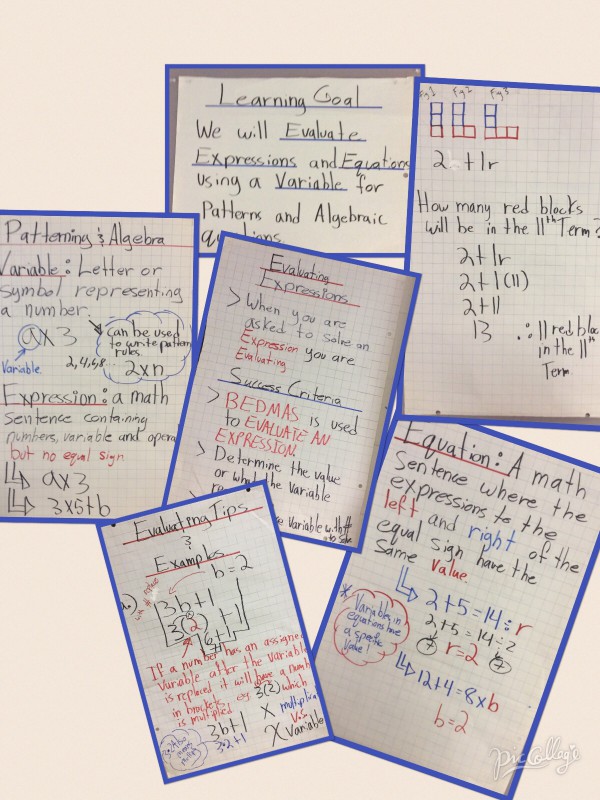 Learning Goal
We will Evaluate
Expressions and Equations
using a Variable for
Patterns and Algebraic
Fig 1 Fig 2 Fig 3
2 + 1r
How many red blocks
will be in the 11th Term?
2 + 1r
2 + 1(11)
2 + 11
13 ∴ 11 red bloc
in the 11th
Term
Patterning & Algebra
Variable: Letter or
symbol representing
a number.
a x 3
Variable
can be used
to write pattern
rules
2,4,6,8...
2xn
Expression: a math
sentence containing
numbers, variable and opera
but no equal sign
a x 3
3 x 5 + b
Evaluating
Expressions
> When you are
asked to solve an
Expression you are
Evaluating
Success Criteria
> BEDMAS is used
to EVALUATE AN
EXPRESSION
> Determine the value
or what the Variable
Variable with
to solve
Equation: A math
Sentence where the
expressions to the
left and right of the
equal sign have the
Same Value
2+5=14÷r
2+5=14÷2
7 r=2 7
* Variables in
equations have
a specific
Value!
12+4=8xb
b=2
Evaluating Tips
&
Examples
b=2
a)
3b+1
3(2)
6+1
7
If a number has an assigned
Variable after the Variable
is replaced it will have a number
in brackets, eg 3(2) which
is multiplied
3b+1
3·2+1
X multiplica
Vs.
x Variable
Pic Collage